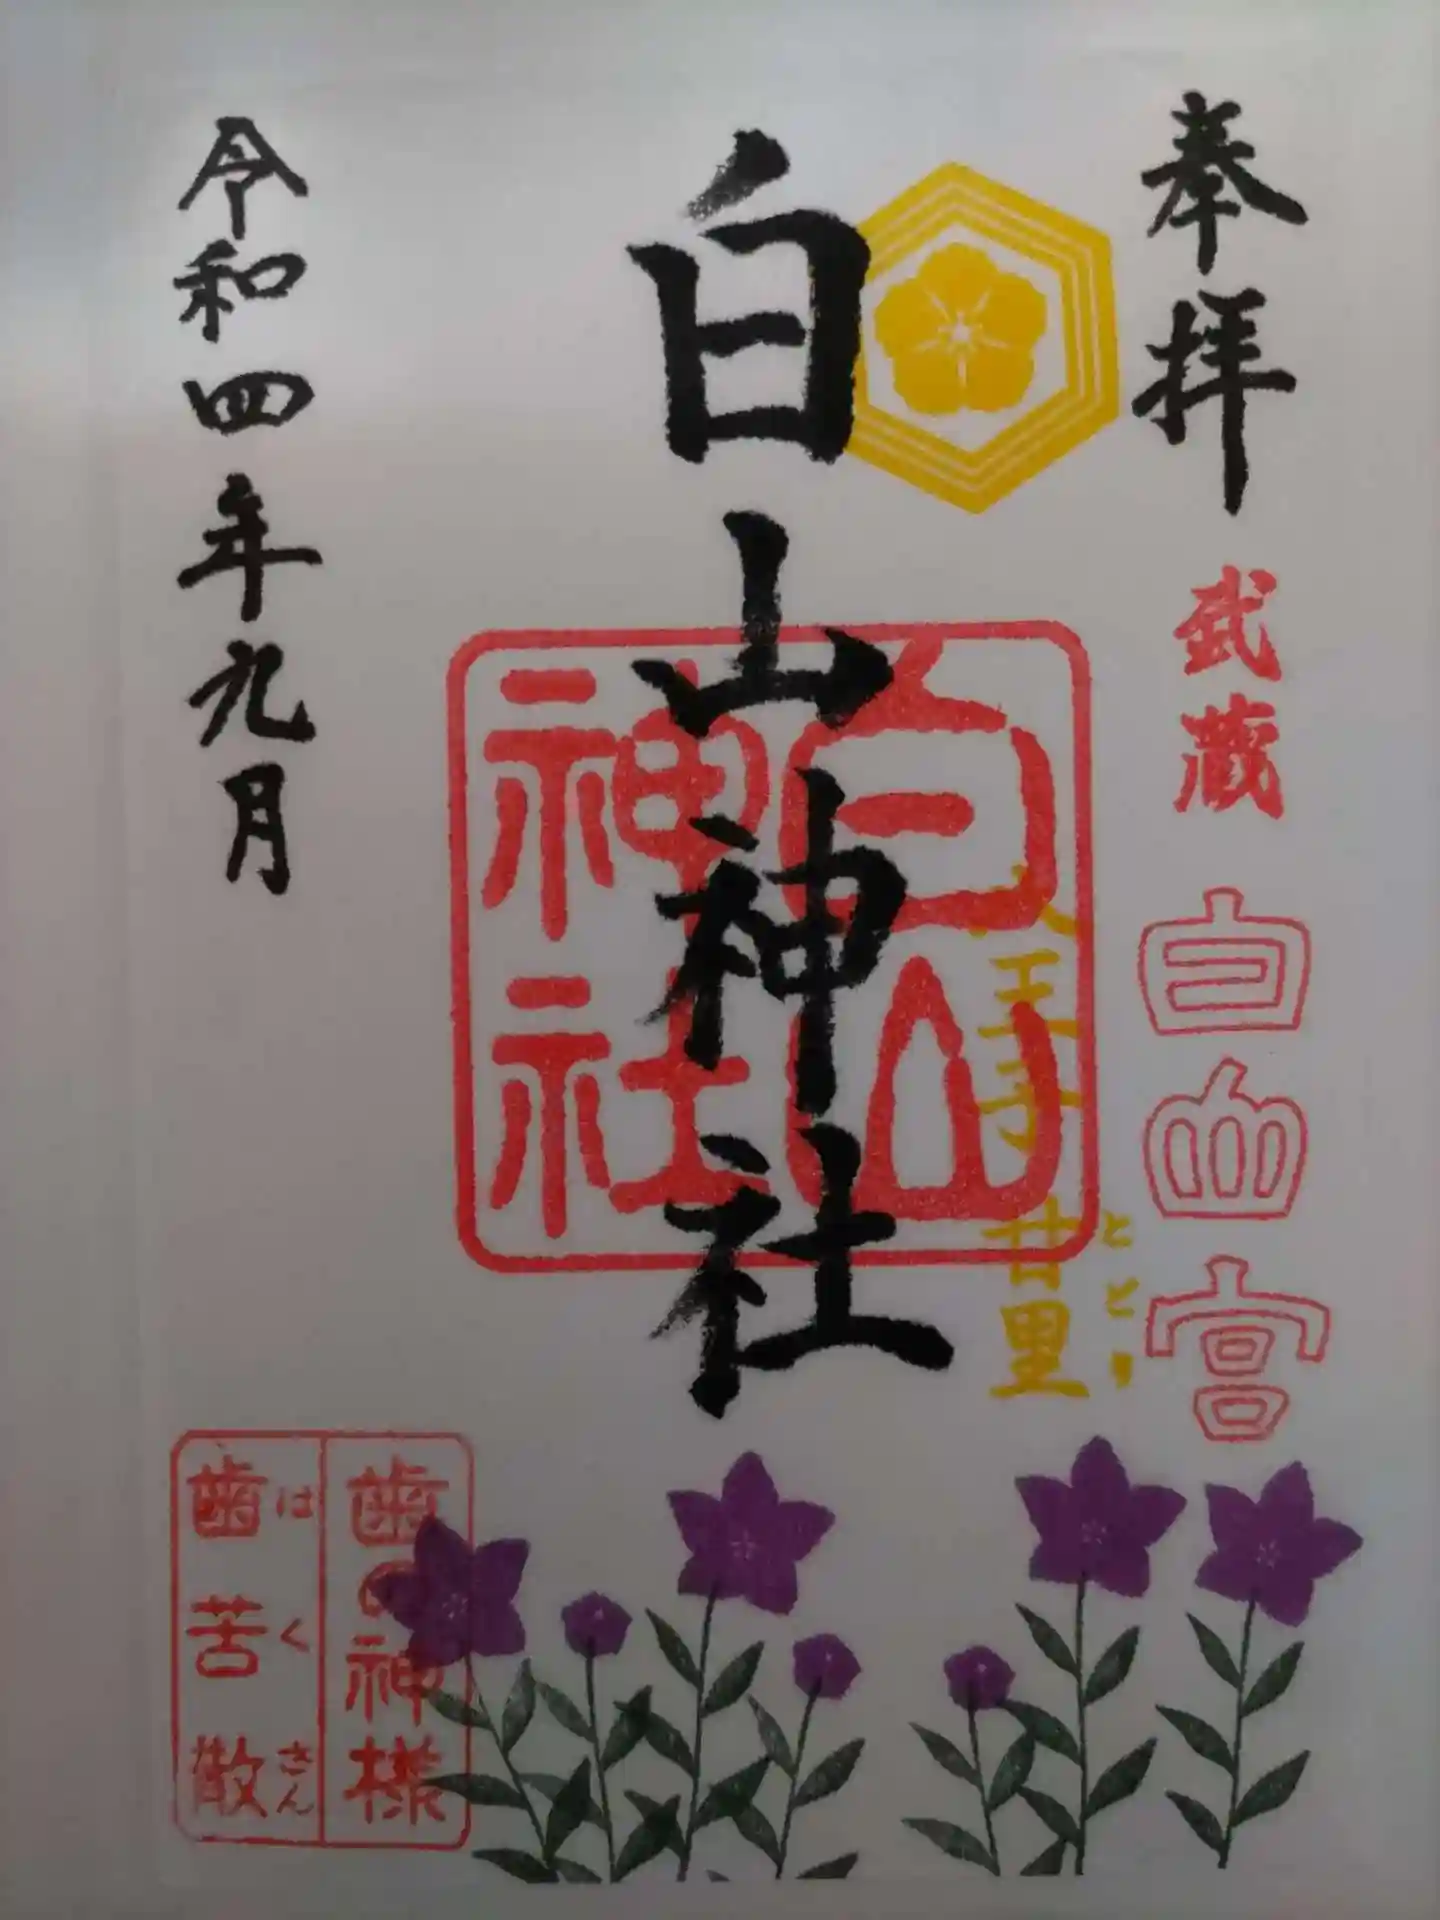 奉拝
武蔵
白山宮
八王子
廿里
ととり
白山神社
白山
神社
令和四年九月
歯の神様
歯苦散
はくさん